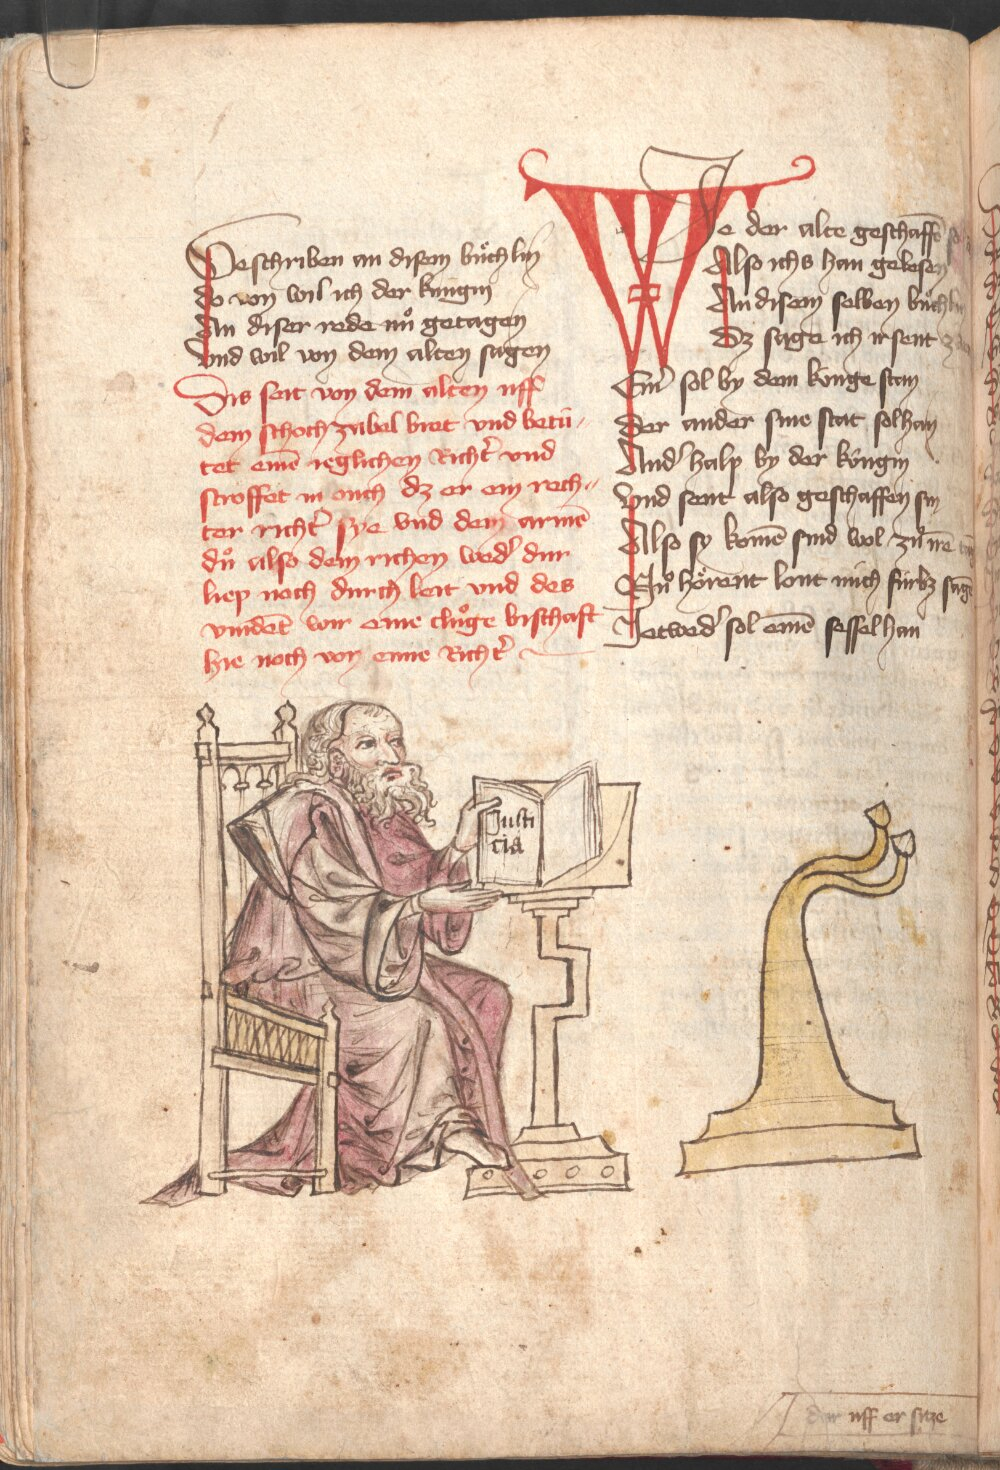 Beschriben an disem bůchlin
do von wil ich der kungin
An diser rede nů getagen
Vnd wil von dem alten sagen
Dis seit von dem alten uff
dem schochzabel bret vnd betü-
tet eine̅ ieglichen Richt̓ vnd
stroffet in ouch dz er ein rech-
ter richt̓ sye vnd dem arme̅
dů also dem richen wed̓ dur
liep noch durch leit vnd des
vindet wir eine clůge bischaft
hie noch von eime Richt̓
Wie der alte geschaffe̅
Also ichs han gelesen
An disem selben bůchlin
Dz sage ich ir sent
Ein̓ sol by dem konge stan
Der ander sine stat sol han
And̓halp by der kôngin
Vnd sent also geschaffen sin
Also sy kome̅ sind wol zů ire
Nů hôrent lont mich fürbz sage̅
Ietwed̓ sol eine̅ sessel han
Justi
cia
dar uff er sitze